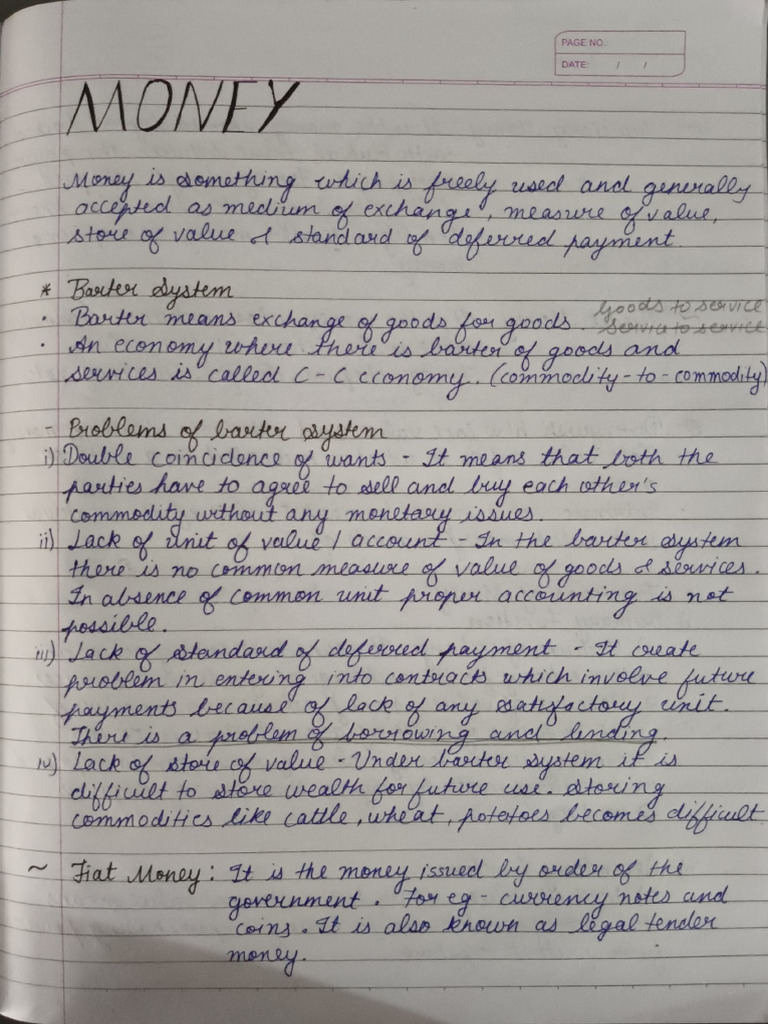 PAGE NO.:
DATE: / /
MONEY
Money is something which is freely used and generally
accepted as medium of exchange, measure of value,
store of value & standard of deferred payment.
* Barter System
Goods to service
· Barter means exchange of goods for goods. Service to service
· An economy where there is barter of goods and
services is called C-C economy. (commodity-to-commodity)
- Problems of barter system
i) Double coincidence of wants - It means that both the
parties have to agree to sell and buy each other's
commodity without any monetary issues.
ii) Lack of unit of value / account - In the barter system
there is no common measure of value of goods & services.
In absence of common unit proper accounting is not
possible.
iii) Lack of standard of deferred payment - It create
problem in entering into contracts which involve future
payments because of lack of any satisfactory unit.
There is a problem of borrowing and lending.
iv) Lack of store of value - Under barter system it is
difficult to store wealth for future use. Storing
commodities like cattle, wheat, potatoes becomes difficult
~ Fiat Money: It is the money issued by order of the
government. For eg - currency notes and
coins. It is also known as legal tender
money.